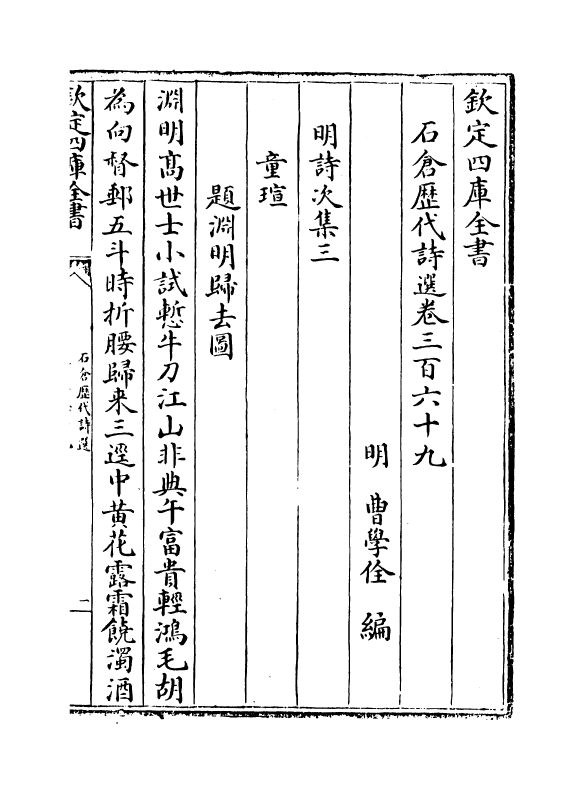 欽定四庫全書
石倉歷代詩選卷三百六十九
明　曹學佺　編
明詩次集三
童瑄
題淵明歸去圖
淵明髙世士小試慙牛刀江山非典午富貴輕鴻毛胡
為向督郵五斗時折腰歸来三逕中黄花露霜饒濁酒
欽定四庫全書
石倉歷代詩選